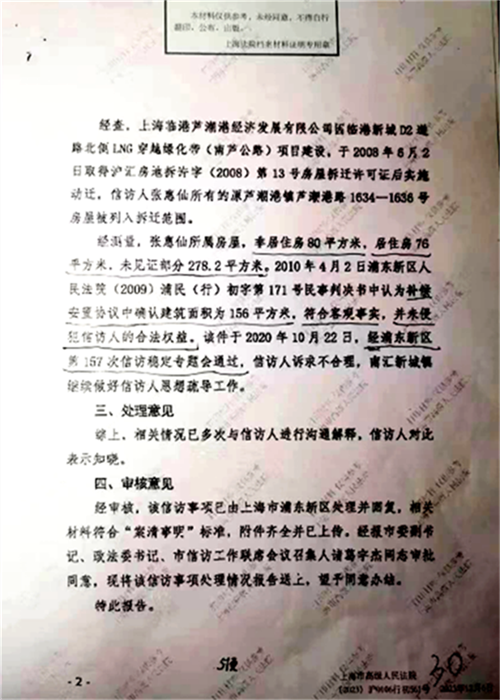 本材料仅供参考，未经同意，不得自行
翻印、公布、出版。
上海法院档案材料证明专用章
经查，上海临港芦潮港经济发展有限公司因临港新城D2道
路北侧LNG穿越绿化带（南芦公路）项目建设，于2008年6月2
日取得沪汇房地拆许字（2008）第13号房屋拆迁许可证后实施
动迁，信访人张惠仙所有的原芦潮港镇芦潮港路1634—1636号
房屋被列入拆迁范围。
经测量，张惠仙所属房屋，非居住房80平方米，居住房76
平方米，未见证部分278.2平方米。2010年4月2日浦东新区人
民法院（2009）浦民（行）初字第171号民事判决书中认为补偿
安置协议中确认建筑面积为156平方米，符合客观事实，并未侵
犯信访人的合法权益。该件于2020年10月22日，经浦东新区
第157次信访稳定专题会通过，信访人诉求不合理，南汇新城镇
继续做好信访人思想疏导工作。
三、处理意见
综上，相关情况已多次与信访人进行沟通解释，信访人对此
表示知晓。
四、审核意见
经审核，该信访事项已由上海市浦东新区处理并回复，相关
材料符合“案清事明”标准，附件齐全并已上传。经报市委副书
记、政法委书记、市信访工作联席会议召集人诸葛宇杰同志审批
同意，现将该信访事项处理情况报告送上，望予同意办结。
特此报告。
- 2 -
30
上海市高级人民法院